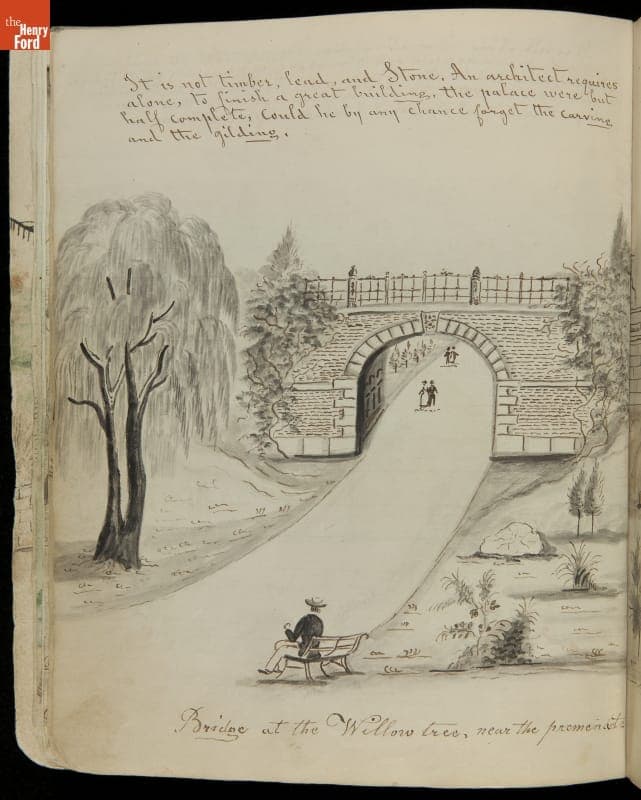 the
Henry
Ford
It is not timber, lead, and Stone, An architect requires
alone, to finish a great building, the palace were but
half complete, Could he by any chance forget the carving
and the gilding.
Bridge at the Willow tree, near the